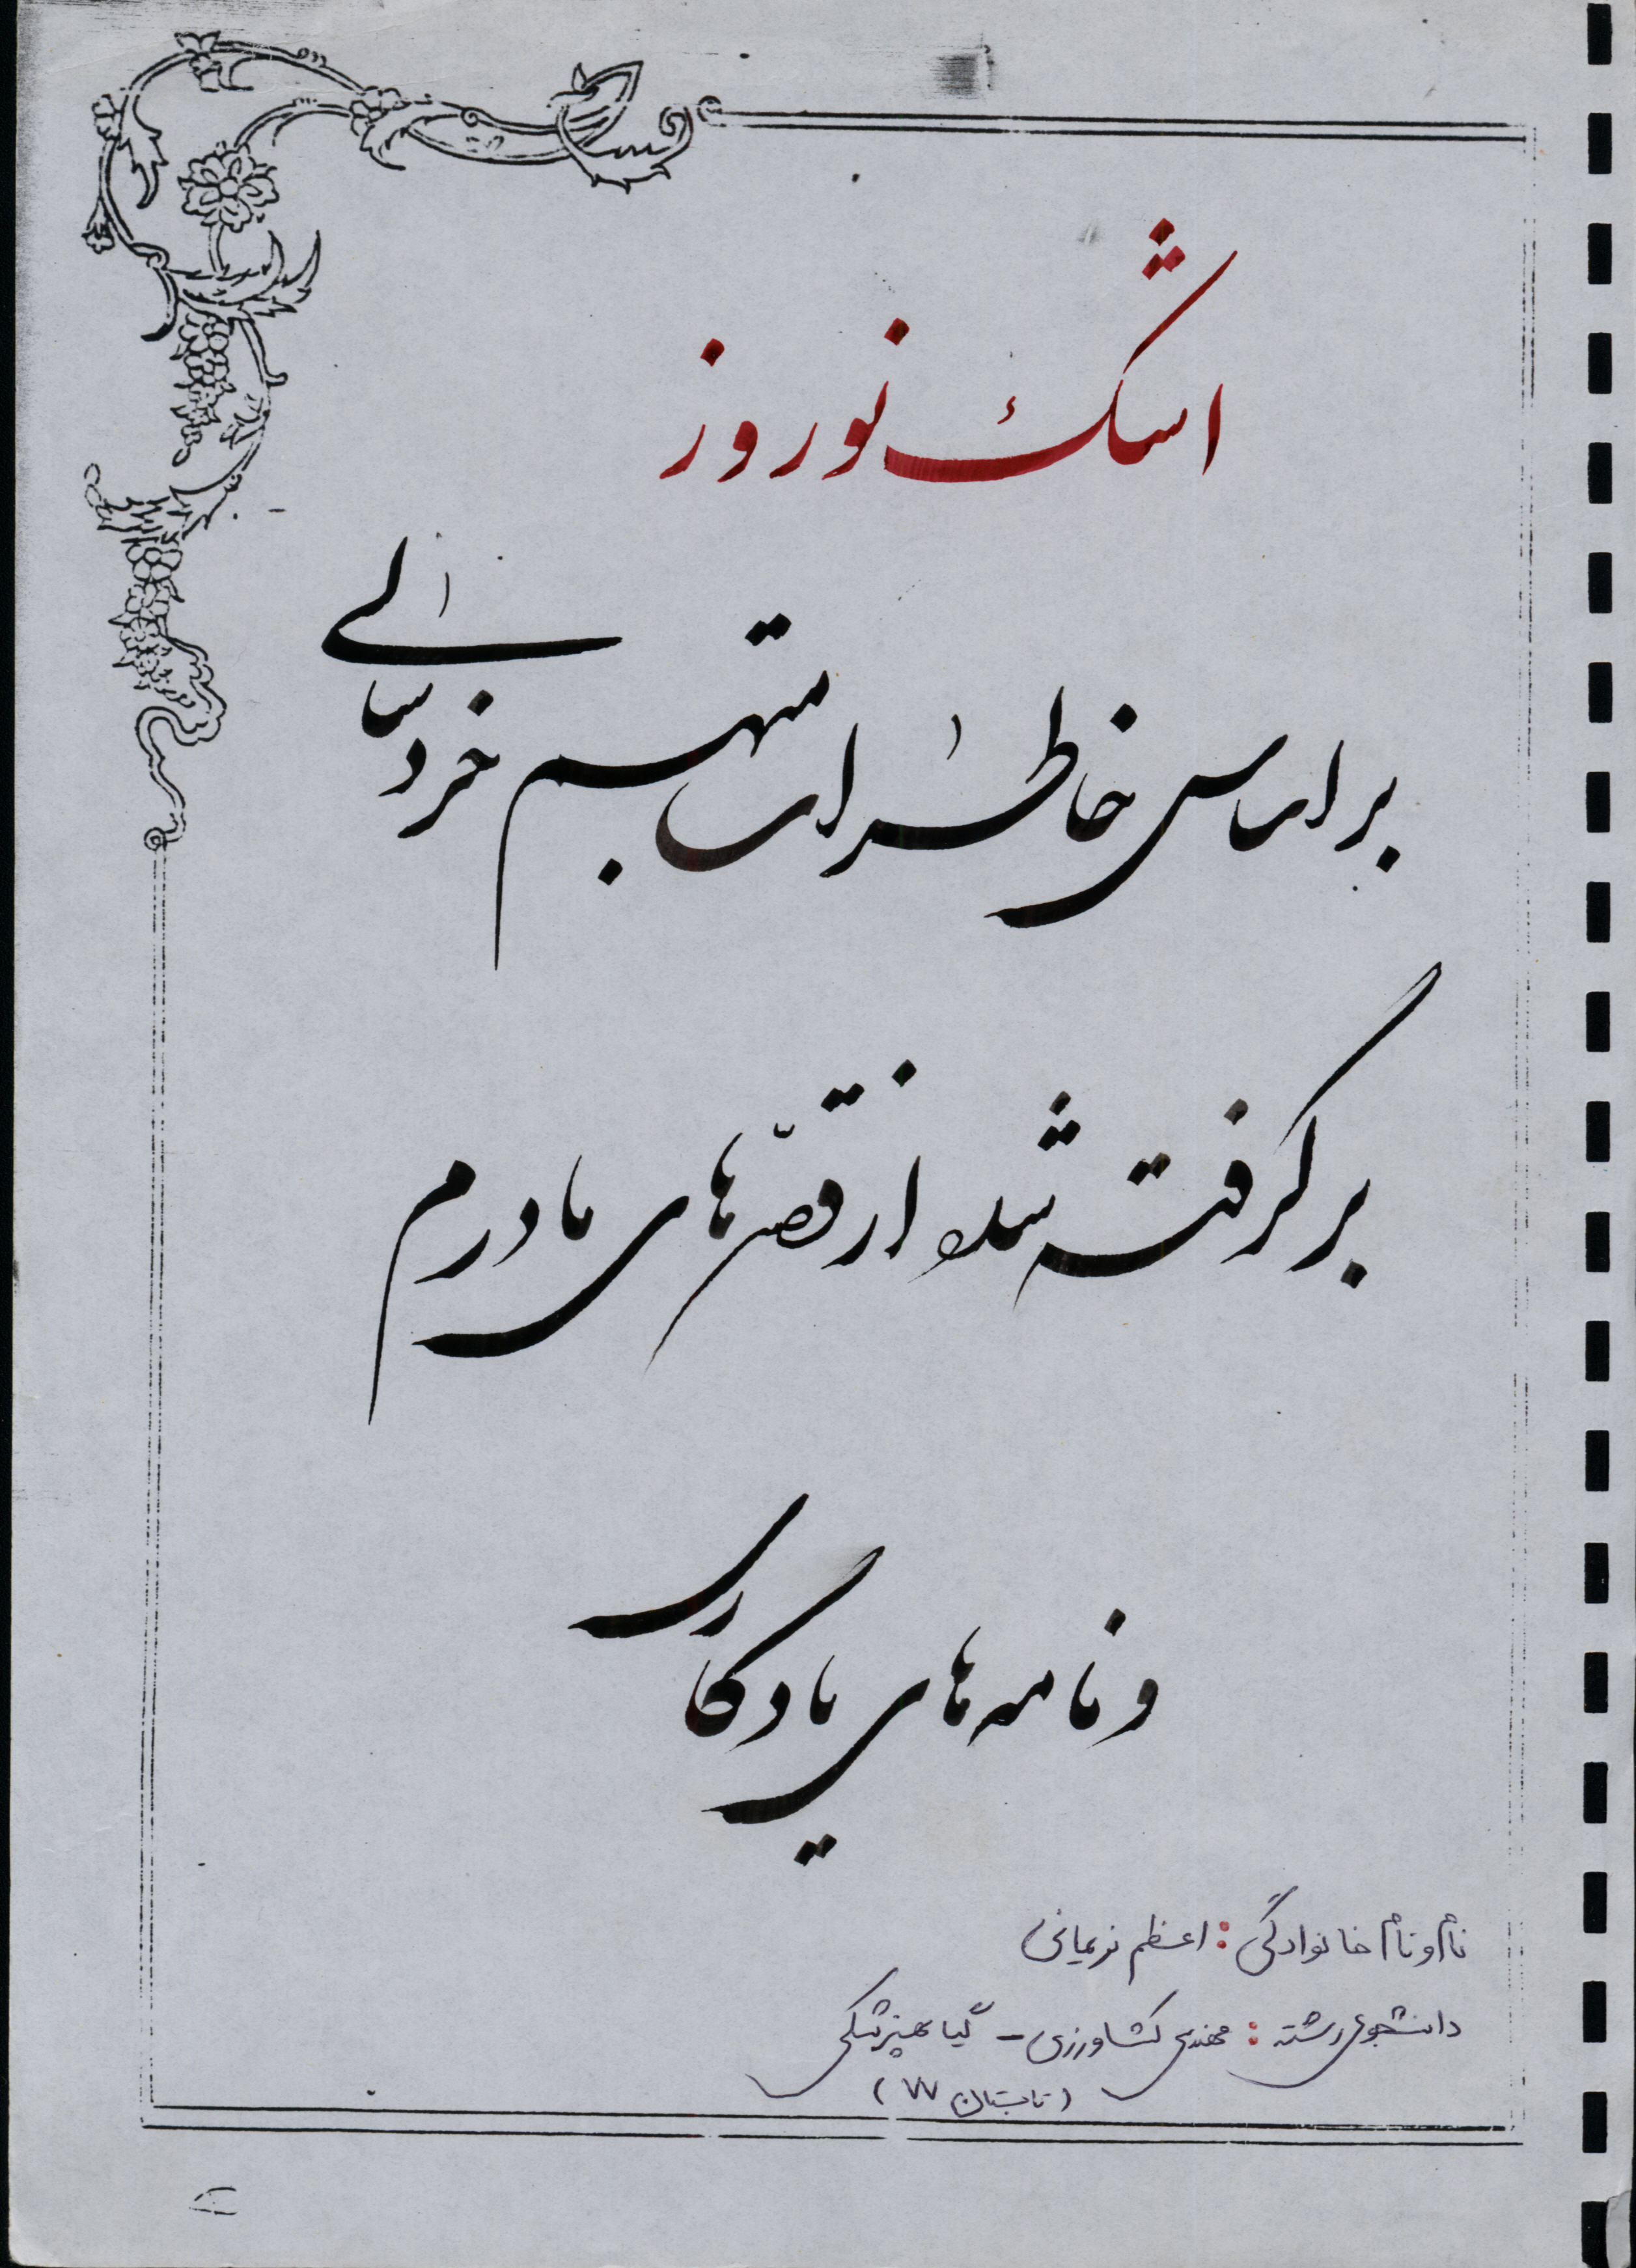 اشک نوروز
براساس خاطرات مبهم خردسالی
برگرفته شده از قصّه‌های مادرم
و نامه‌های یادگاری
نام و نام خانوادگی: اعظم نریمانی
دانشجوی رشته: مهندسی کشاورزی - گیاهپزشکی
(تابستان ۷۷)